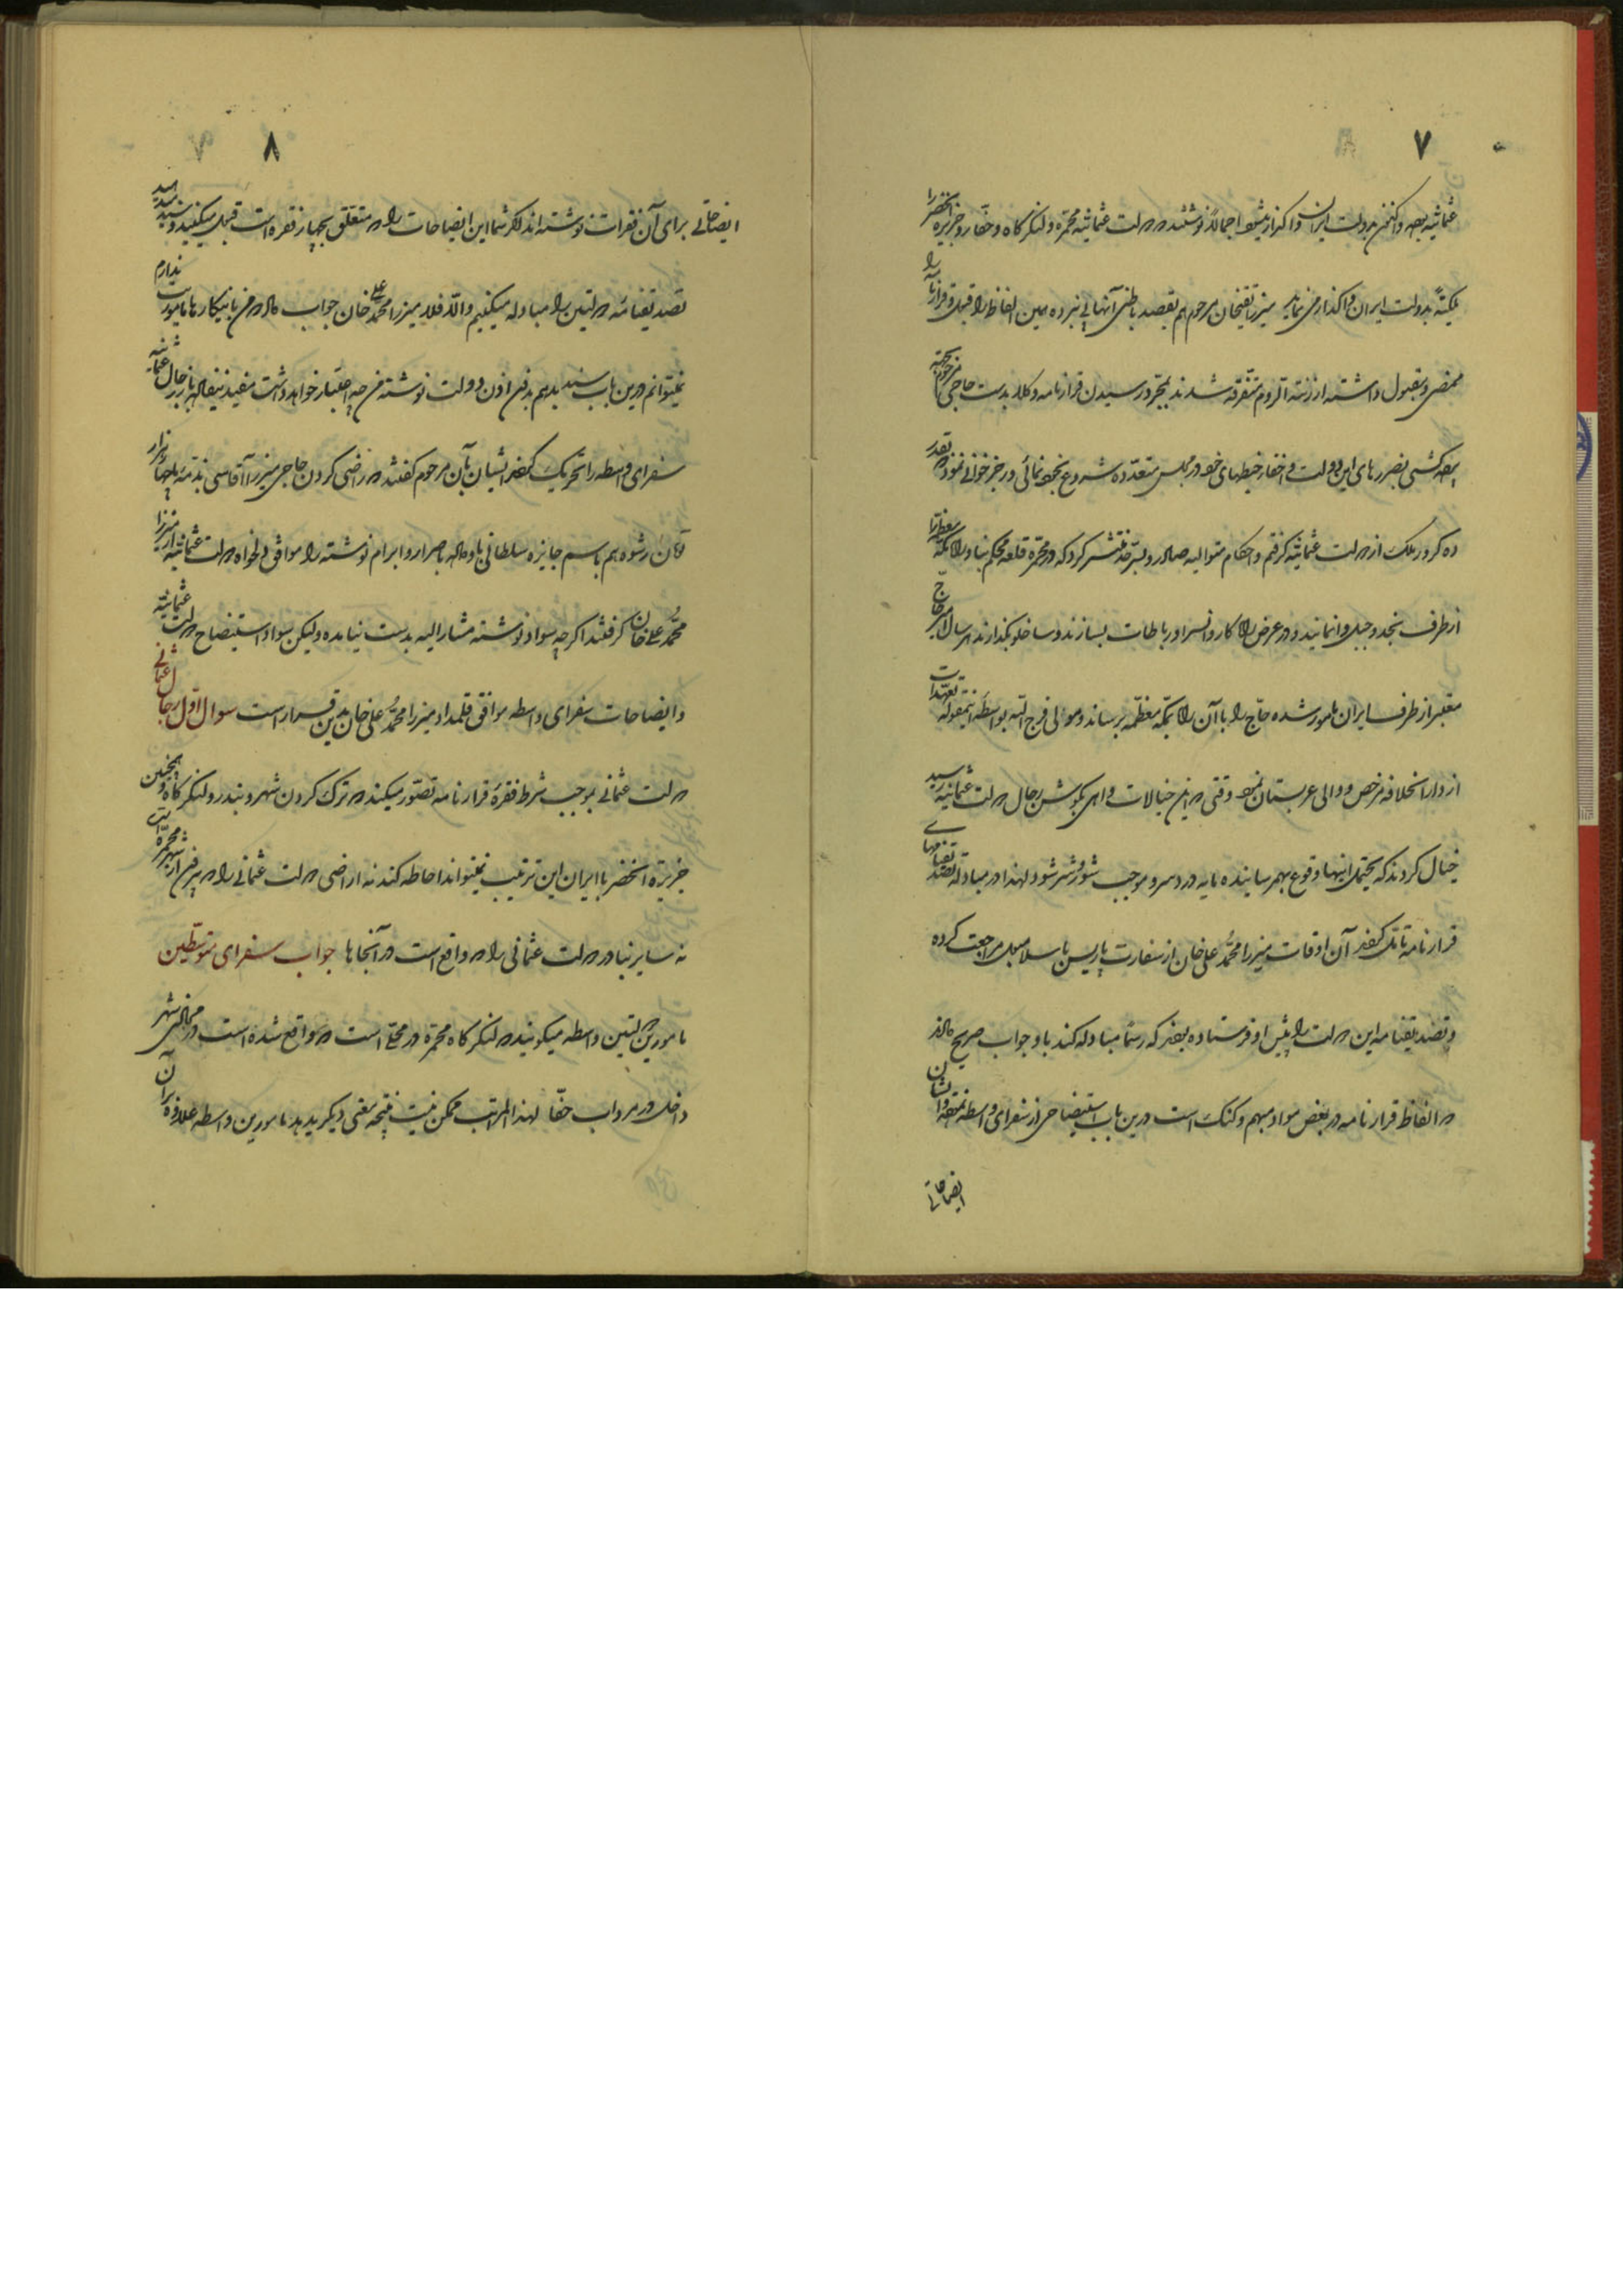 ۷
عثمانیه بوده و اکنون بدولت ایران واگذار میشود اجمالاً نوشتند که دولت عثمانیه محمره و لنگرگاه و حفار و جزیرة الخضر را
بدولت ایران واگذار می نماید میرزا تقیخان مرحوم هم بقصد باطنی آنها پی نبرده همین الفاظ را قبول و قرارنامه را
ممضی و مقبول داشته از ارزنة الروم متفرقه شدند بمجرد رسیدن قرارنامه وکلا بدست حاجی مرحوم
این دولت و افتخار خبطهای خود در مجلس متعدده شروع بخودنمائی و رجزخوانی نمود که بقدر
ده کرور ملک از دولت عثمانیه گرفتم و احکام متوالیه صادر و منتشر کرد که در محمره قلعه محکم بنا و راه مکه معظمه را
از طرف نجد و جبل وا نمایند و در عرض راه کاروانسرا و رباطات بسازند و ساخلو بگذارند هر سال امیر حاج
معتبر از طرف ایران مامور شده حاج را با آن راه بمکه معظمه برساند و مولی فرج الله بواسطه اینمقوله تعهدات
از دارالخلافه مرخص و والی عربستان وقتی که این خیالات واهی بگوش رجال دولت عثمانیه رسید
خیال کردند که یحتمل اینها وقوع بهم رسانیده مایه دردسر و موجب شور و شر شود لهذا در مبادله تصدیقنامهای
قرارنامه آن اوقات میرزا محمد علی خان از سفارت پاریس باسلامبول مراجعت کرده
و تصدیقنامه این دولت را پیش او فرستاده بودند که رسماً مبادله کند باو جواب صریح دادند
که الفاظ قرارنامه در بعض مواد مبهم و گنگ است درین باب استیضاحی از سفرای واسطه نموده و ایشان
ایضاحاتی
۸
ایضاحاتی برای آن فقرات نوشته اند اگر شما این ایضاحات را که متعلق بچهار فقره است قبول میکنید و سند میدهید
تصدیقنامه دولتین را مبادله میکنیم والا فلا میرزا محمد علی خان جواب داد که من باینکارها ماموریت ندارم
نمیتوانم درین باب سند بدهم بدون اذن دولت نوشته من چه اعتبار خواهد داشت مفید نیفتاد باز رجال عثمانیه
سفرای واسطه را تحریک کرده ایشان بآن مرحوم گفتند که راضی کردن حاجی میرزا آقاسی بذمه ما چهار هزار
تومان رشوه هم باسم جایزه سلطانی باو داده باصرار و ابرام نوشته را موافق دلخواه دولت عثمانیه از میرزا
محمد علی خان گرفتند اگرچه سواد نوشته مشارالیه بدست نیامده ولیکن سواد استیضاح دولت عثمانیه
و ایضاحات سفرای واسطه موافق قلمداد میرزا محمد علی خان بدین قرار است سوال اول رجال عثمانی
دولت عثمانی بموجب شرط فقره قرارنامه تصور میکند که ترک کردن شهر و بندر و لنگرگاه و همچنین
جزیرة الخضر با ایران این ترتیب نمیتواند احاطه کند نه اراضی دولت عثمانی را که بیرون از شهر محمره است
نه سایر بنادر دولت عثمانی را که واقع است در آنجاها جواب سفرای متوسطین
مامورین دولتین واسطه میگویند که لنگرگاه محمره در محلی است که واقع شده است در محاذی شهر
داخل در مرداب حفار لهذا المراتب ممکن نیست نتیجه معنی دیگر بدهد مامورین واسطه علاوه بر آن